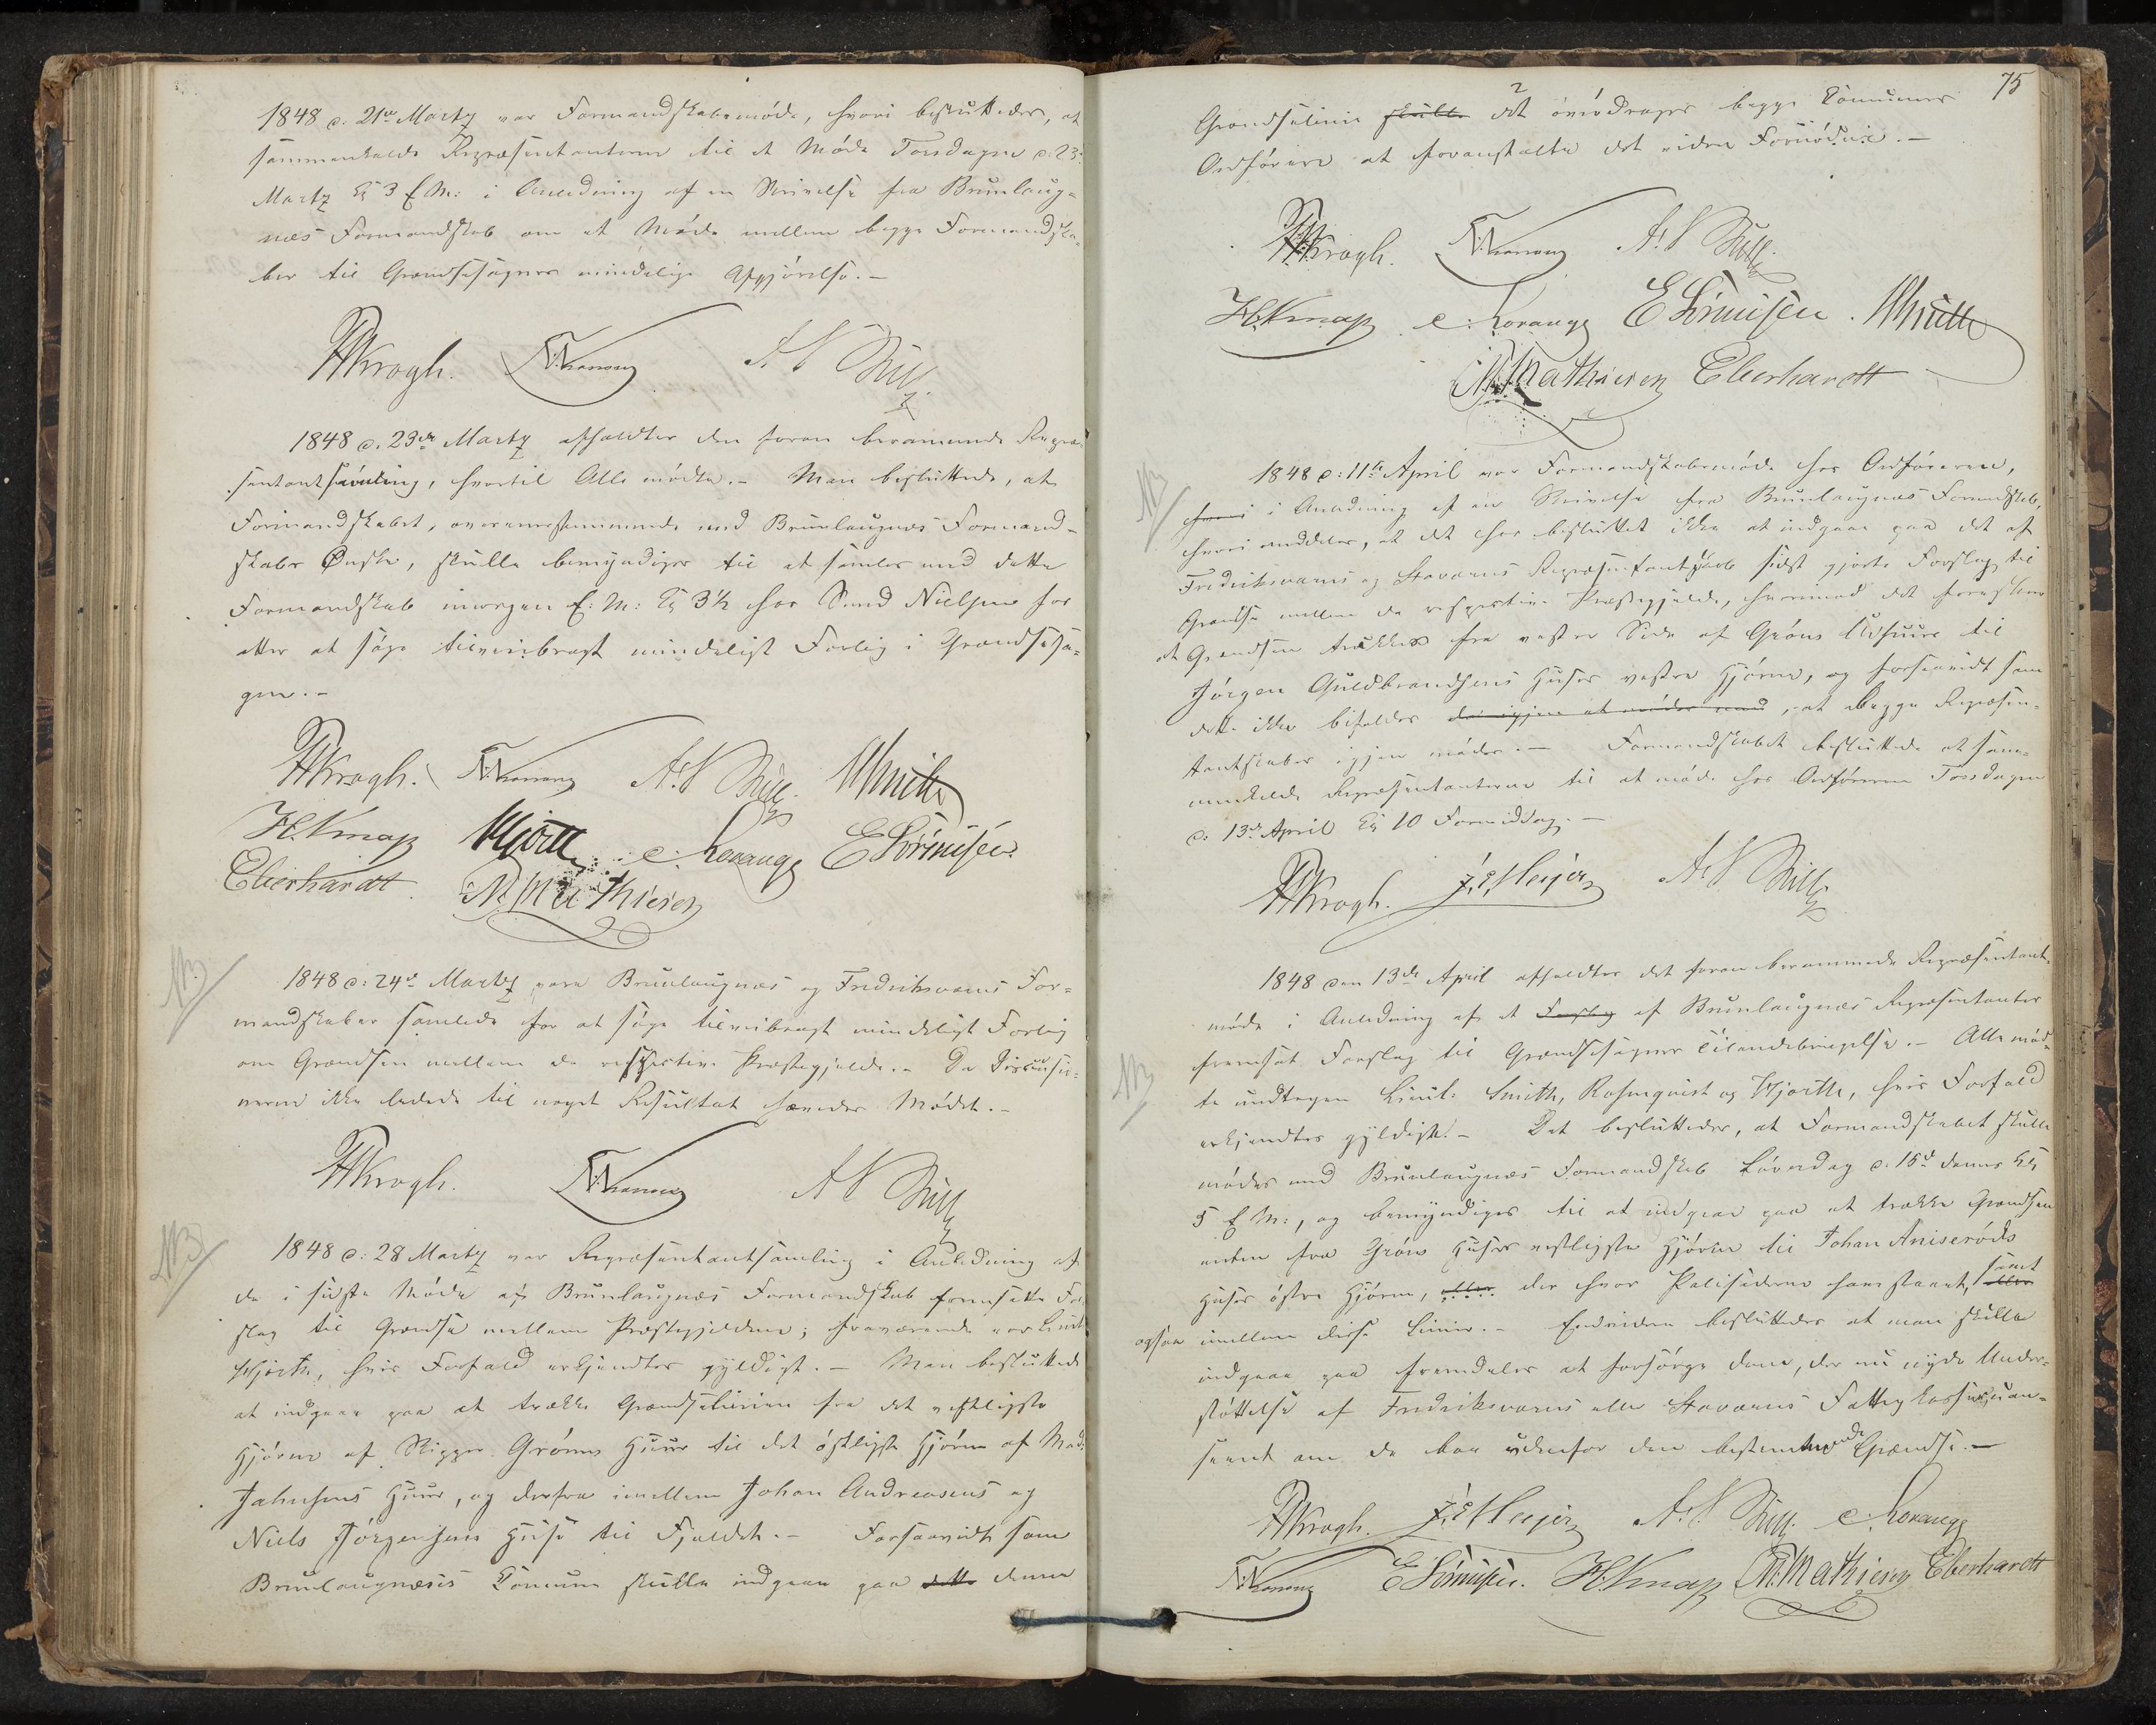 1848 d. 21de Martz var Formandskabsmøde, hvori besluttedes, at
sammenkalde Repræsentanterne til et Møde Torsdagen d. 23de
Martz Kl 3 E.M: i Anledning af en Skrivelse fra Brunlaug-
næs Formandskab om et Møde mellem begge Formandska-
ber til Grændsesagens mindelige Afgjørelse.-
HKrogh.
1848 d. 23de Martz afholdtes den foran berammede Repræ-
sentantsamling, hvortil Alle mødte.- Man besluttede, at
Formandskabet, overensstemmende med Brunlaugnæs Formand-
skabs Ønske, skulle bemyndiges til at samles med dette
Formandskab imorgen E: M: Kl 3½ hos Sund Nielsen for
atter at søge tilveiebragt mindeligt Forlig i Grændsesa-
gen.-
HKrogh. Smith
H.Knap Hjorth C. Lorange E Sørensen.
Eberhardt. M. Mathiesen
NB
1848 d: 24de Martz vare Brunlaugnæs og Fredriksværns For-
mandskaber samlede for at søge tilveiebragt mindeligt Forlig
om Grændsen mellem de respective Præstegjelde.- Da Discusio-
nerne ikke ledede til noget Resultat hævedes Mødet.-
HKrogh.
NB
1848 d: 28 Martz var Repræsentantsamling i Anledning af
de i sidste Møde af Brunlaugnæs Formandskab fremsatte For-
slag til Grændse mellem Præstegjeldene; fraværende var Lieut.
Hjorth, hvis Forfald erkjendtes gyldigt.- Man besluttede
at indgaae paa at trække Grændselinien fra det vestligste
Hjørne af Skipper Grøns Huus til det østligste Hjørne af Mads
Jahnsens Huus, og derfra imellem Johan Andreasens og
Niels Jørgensens Huse til Fjeldet.- Forsaavidt som
Brunlaugnæsis Commune skulle indgaae paa dette denne
75
Grændselinie skulle det overdrages begge Communers
2
Ordførere at foranstalte det videre Fornødne.-
HKrogh.
H.Knap C. Lorange E Sørensen. Smith
M. Mathiesen Eberhardt
NB
1848 d: 11te April var Formandskabsmøde hos Ordføreren,
hvori i Anledning af en Skrivelse fra Brunlaugnæs Formandskab,
hvori meddeles, at det har besluttet ikke at indgaae paa det af
Fredriksværns og Staværns Repræsentantskab sidst gjorte Forslag til
Grændse mellem de respective Præstegjelde, hvorimod det foreslaaer
at Grændsen trækkes fra vestre Side af Grøns Udhuus til
Jørgen Guldbrandsens Huses vestre Hjørne, og forsaavidt som
dette ikke bifaldes da igjen at mødes med, at begge Repræsen-
tantskaber igjen mødes.- Formandskabet besluttede at sam-
menkalde Repræsentanterne til at møde hos Ordføreren Torsdagen
d. 13de April Kl 10 Formiddag.-
HKrogh.
NB
1848 den 13de April afholdtes det foran berammede Repræsentant-
møde i Anledning af et Forslag af Brunlaugnæs Repræsentanter
fremsat Forslag til Grændsesagens Tilendebringelse.- Alle mød-
te undtagen Lieut: Smith, Rosenqvist og Hjorth, hvis Forfald
erkjendtes gyldigt.- Det besluttedes, at Formandskabet skulle
mødes med Brunlaugnæs Formandskab Løverdag d. 15de dennes Kl
5 E.M:, og bemyndiges til at indgaae paa at trække Grændsen
enten fra Grøns Huses vestligste Hjørne til Johan Aniserøds
Huses østre Hjørne, eller der hvor Palisaderne have staaet, eller
samt
ogsaa imellem disse Linier.- Endvidere besluttedes at man skulle
indgaae paa fremdeles at forsørge dem, der nu nyde Under-
støttelse af Fredriksværns eller Staværns Fattigkasse, uan-
seet om de boe udenfor den bestemmende Grændse.-
HKrogh. C Lorange
E Sørensen. H.Knap M. Mathiesen Eberhardt